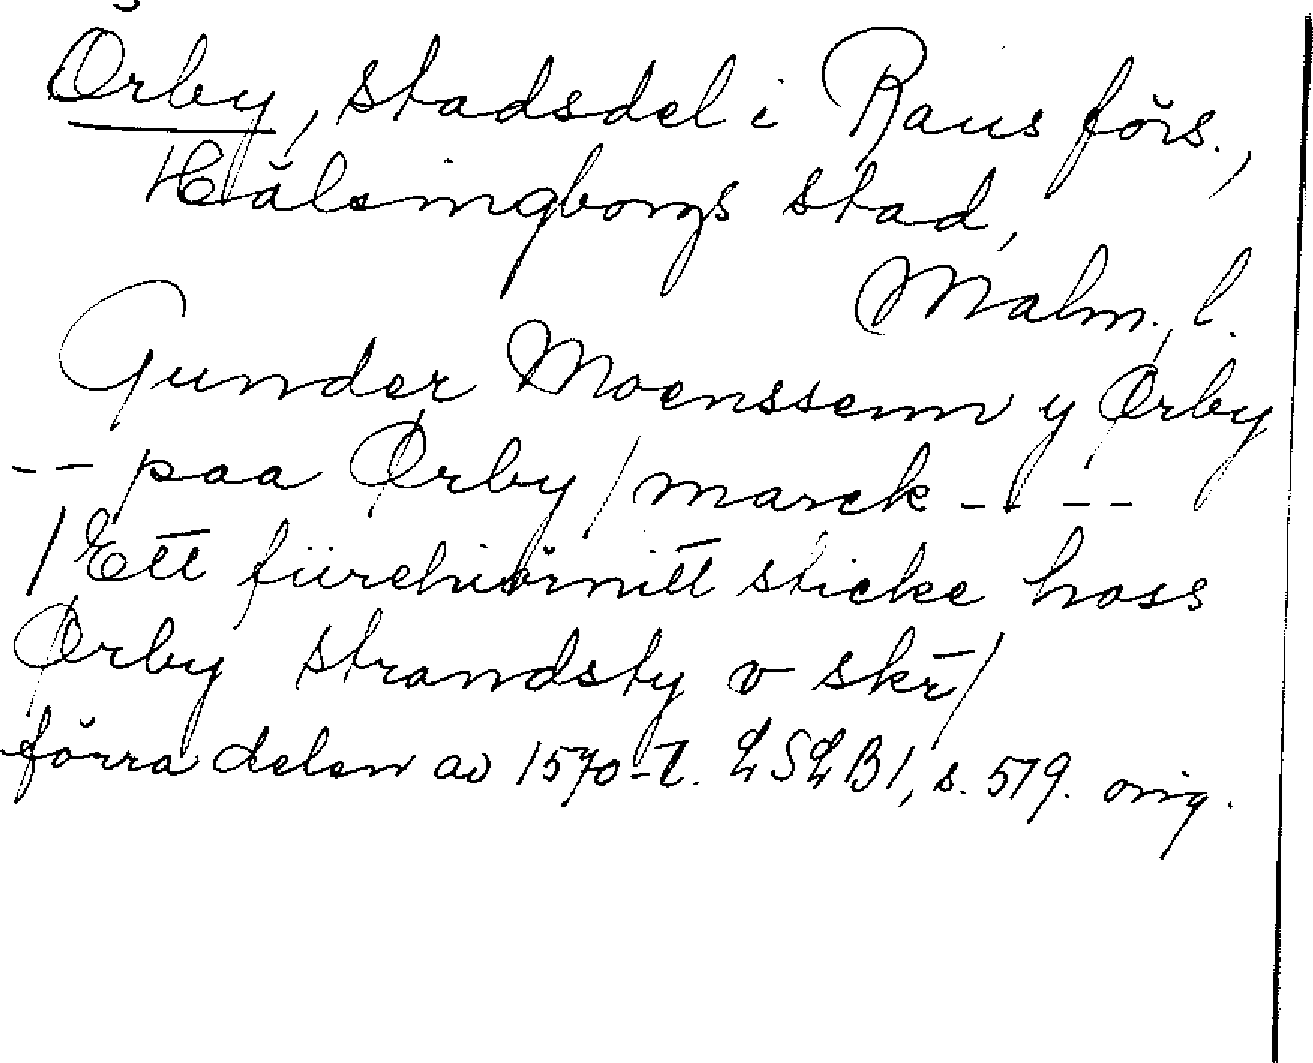 Örby, stadsdel i Raus förs.,
Hälsingborgs stad,
Malm. l.
Gunder Moenssenn y Ørby
-- paa Ørby / marck - - --
/ Ett fiirehiörnitt sticke hoss
Ørby strandsty v skr /
förra delen av 1570-t. LSLB1, s. 519. orig.